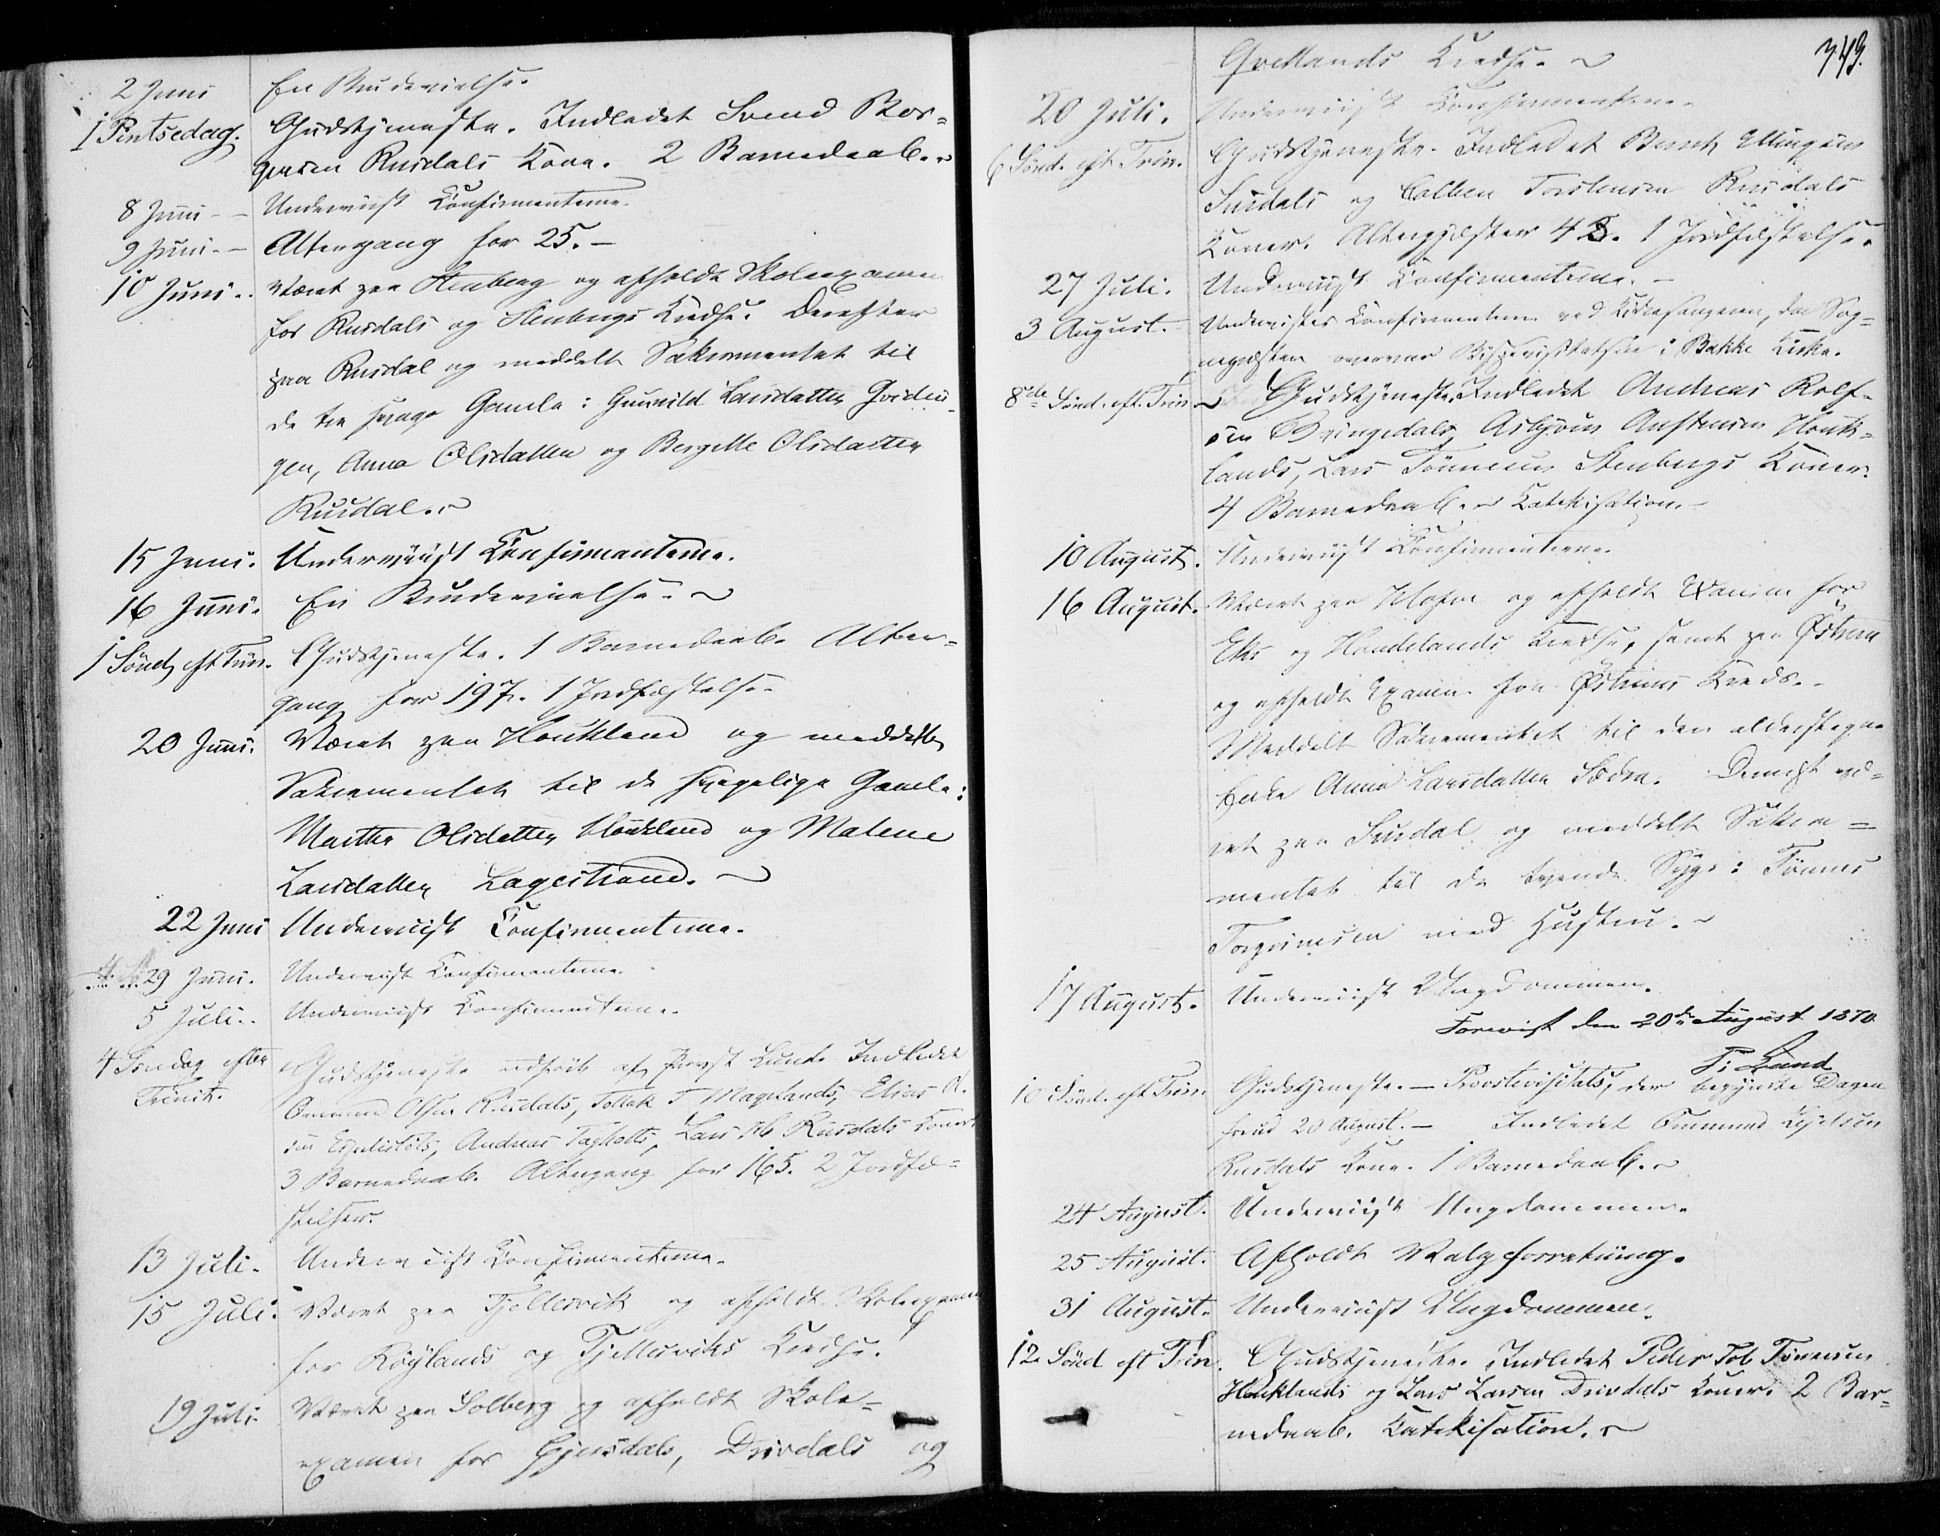 2 Juni En Brudevielse.
1 Pintsedag. Gudstjeneste. Indledet Svend Bor-
gersen Rusdals Kone. 2 Barnedaab.
8 Juni Underviist Confirmanterne.
9 Juni. Altergang for 25.
10 Juni. Været paa Stenberg og afholdt Skoleexamen
for Rusdals og Stenbergs Kredse. Derefter
paa Rusdal og meddelt Sakramentet til
de tre svage Gamle: Gunnild Larsdatter
gen, Anna Olsdatter og Bergitte Olsdatter
Rusdal.
15 Juni. Underviist Confirmanterne.
16 Juni. En Brudevielse.
1 Sönd. eft Trin. Gudstjeneste. 1 Barnedaab. Alter-
gang for 197. 1 Jordfæstelse.
20 Juni. Været paa Houkland og meddelt
Sakramentet til de svagelige Gamle:
Marthe Olsdatter Houkland og Malene
Larsdatter Lagestrand.
22 Juni Underviist Confirmanterne.
29 Juni. Underviist Confirmanterne.
5 Juli. Underviist Confirmanterne.
4 Søndag efter Gudstjeneste udført af Provst Lund. Indledet
Trinit. Ommund Olsen Rusdals, Tollak T Magelands, Elias O.
sen Espetvedts, Andreas Lars Rusdals Koner
3 Barnedaab. Altergang for 165. 2 Jordfæ-
stelser.
13 Juli. Underviist Confirmanterne.
15 Juli. Været paa Tjellesvik og afholdt Skoleexamen
for Röylands og Tjellesviks Kredse.
19 Juli Været paa Solberg og afholdt Skole-
examen for Gjersdals, Drivdals og
349.
Kredse.
20 Juli. Underviist Confirmanterne.
6 Sönd. eft. Trin. Gudstjeneste. Indledet Bernt Ellingsen
Surdals og Colben Torstensen Rusdals
Koner. Altergjæster 43. 1 Jordfæstelse.
27 Juli. Underviist Confirmanterne.
3 August. Undervistes Confirmanterne ved Kirkesangeren, da Sog-
nepræsten overvar Bispevisitatsen i Bakke Kirke.
8de Sönd. eft. Trin Gudstjeneste. Indledet Andreas Rolf-
sen Bringedals, Asbjørn Austensen Houk-
lands, Lars Tönnesen Stenbergs Koner.
4 Barnedaab. Katekisation.
10 August. Underviist Confirmanterne.
16 August. Været paa og afholdt Examen for
Eks og Haudelands Kredse, samt paa Østrem
og afholdt Examen for Østrems Kreds.
Meddelt Sakramentet til den alderstegne
Enke Anna Larsdatter Dernæst væ-
ret paa Surdal og meddelt Sakra-
mentet til de tvende Syge: Tönnes
Torgrimsen med Hustru.
17 August. Underviist Ungdommen.
Forevist den 20de August 1870
Lund
10 Sönd. eft Trin. Gudstjeneste. Provstevisitats, der begyndte Dagen
forud 20 August. Indledet Ommund Kjetelsen
Rusdals Kone. 1 Barnedaab.
24 August. Underviist Ungdommen.
25 August. Afholdt Valgforretning.
31 August. Underviist Ungdommen.
12 Sönd eft Trin. Gudstjeneste. Indledet Peder Tob. Tönnesen
Houklands og Lars Larsen Drivdals Koner. 2 Bar-
nedaab. Katekisation.